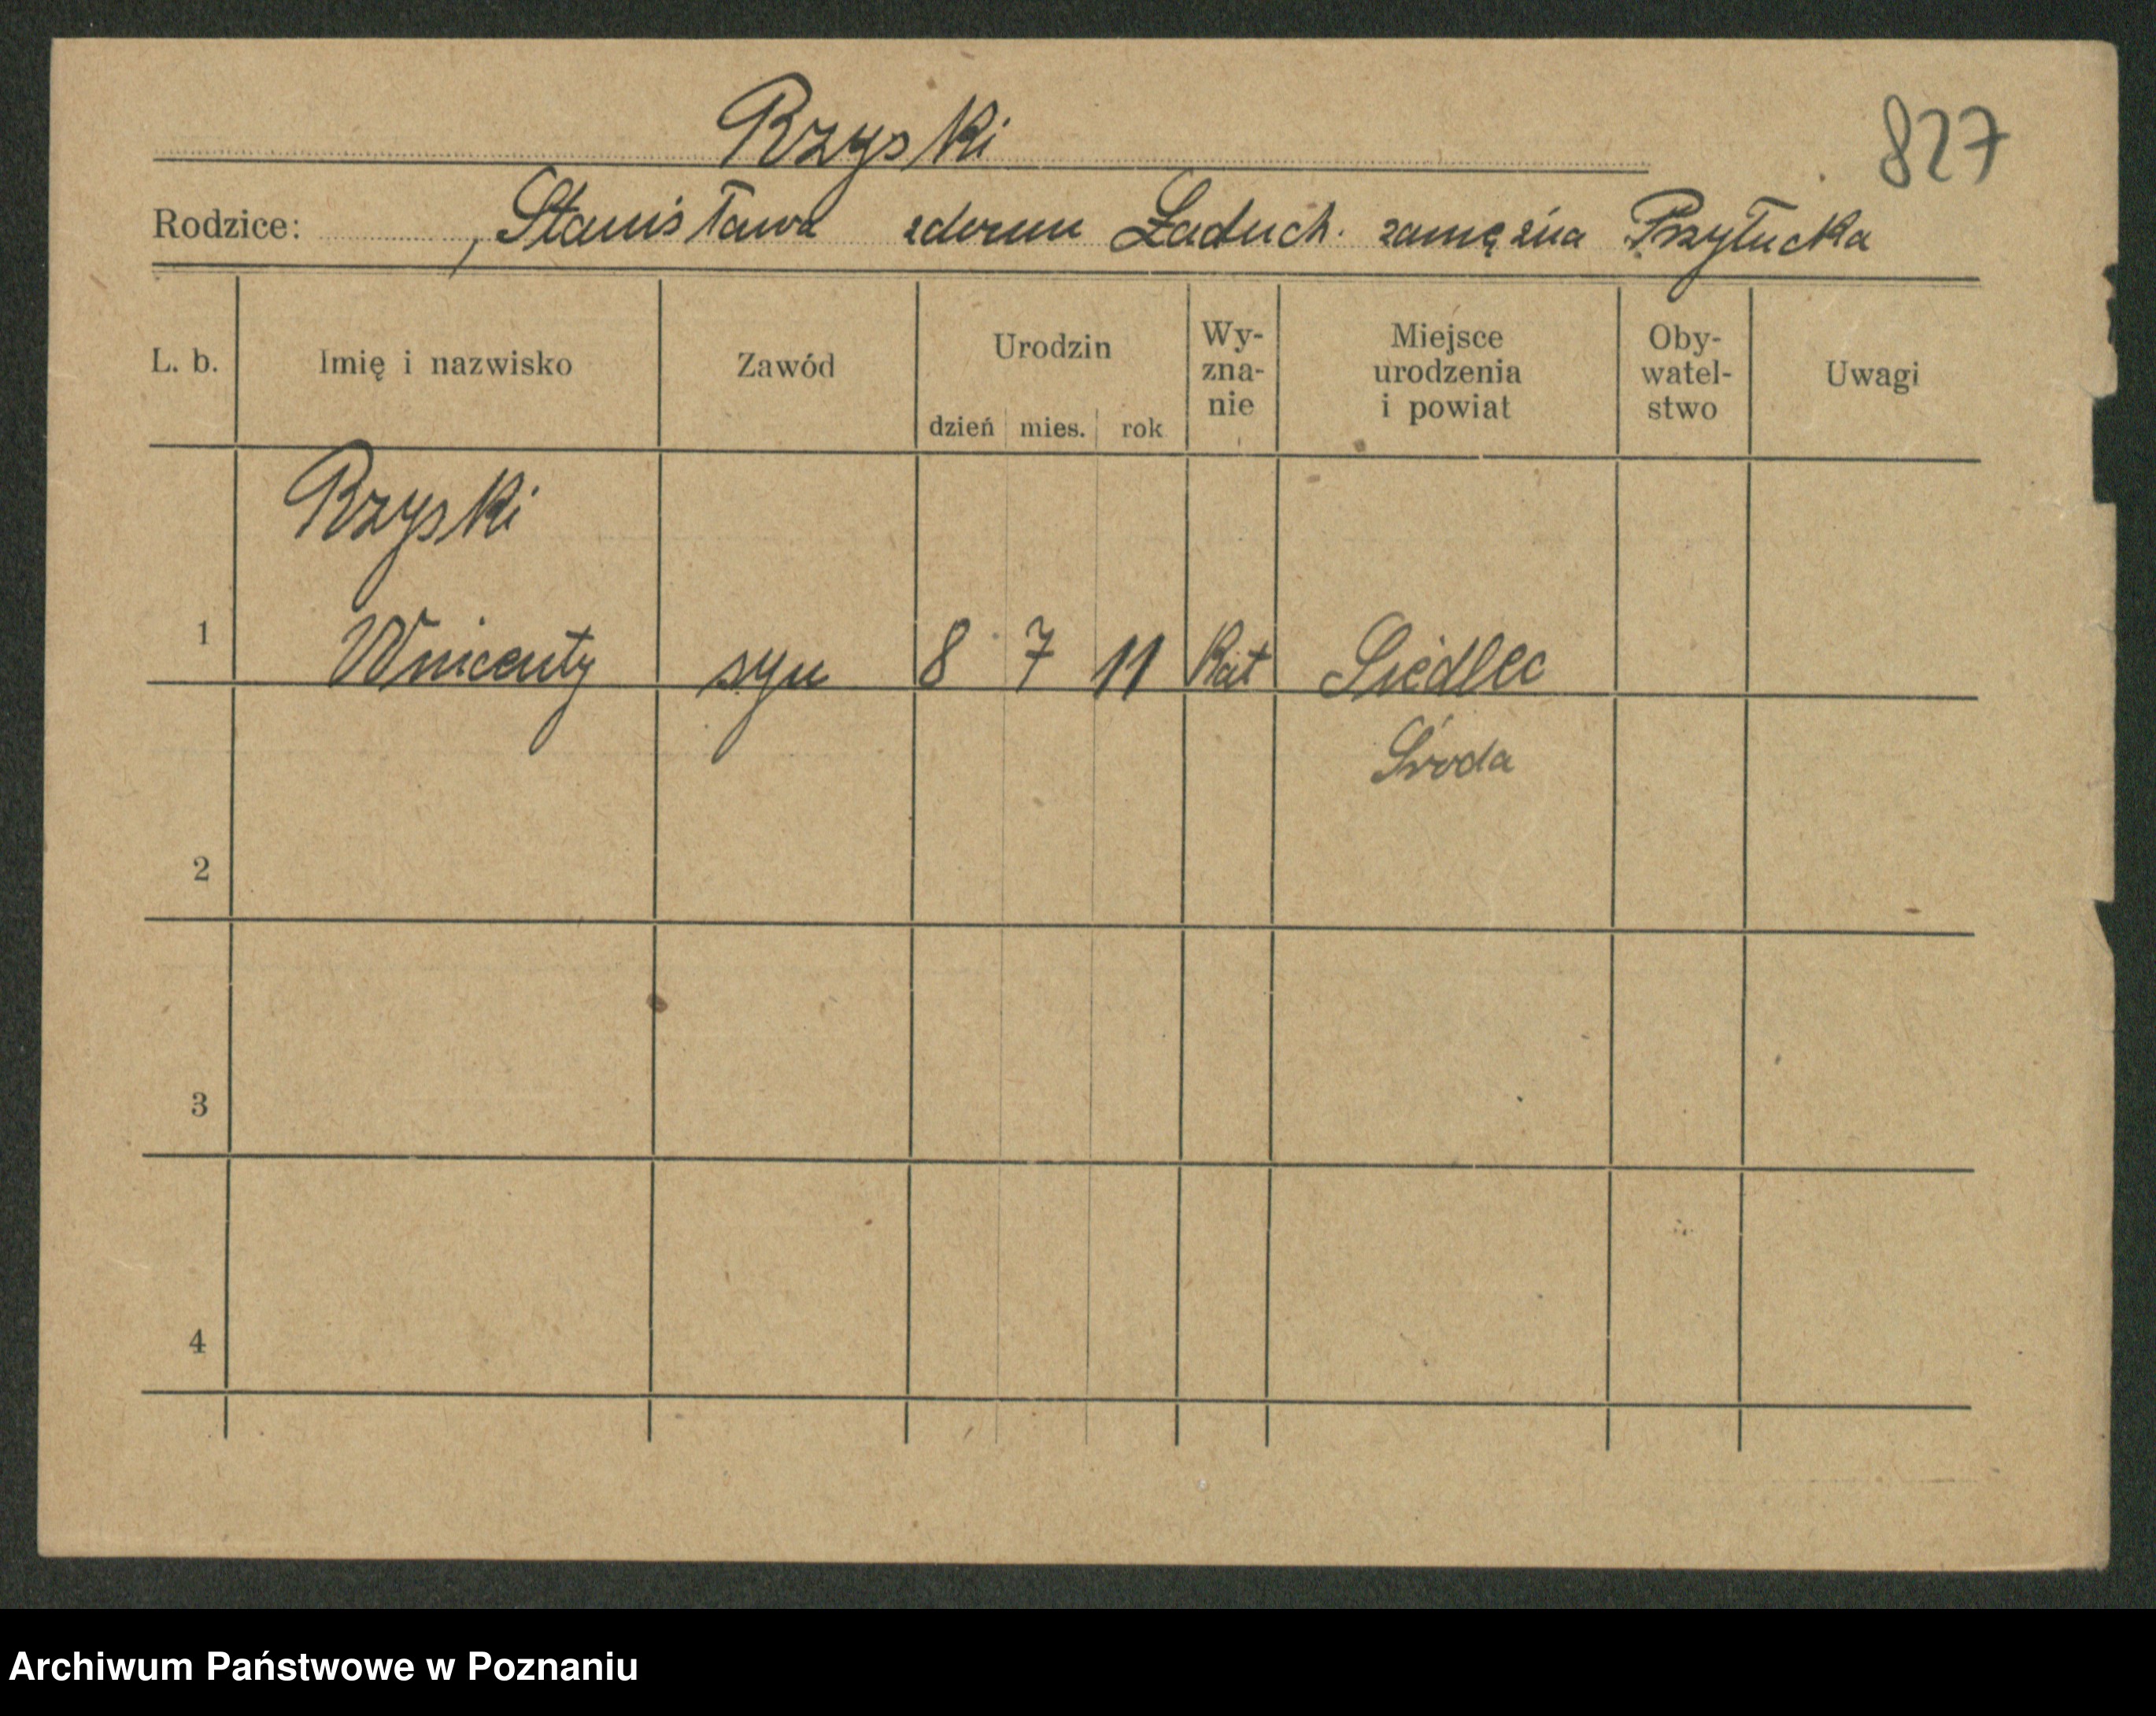 Rzyski
827
Rodzice: , Stanisława zdomu Ładuch. zamężna Przyłucka
L. b. Imię i nazwisko Zawód Urodzin dzień mies. rok Wy-zna-nie Miejsce urodzenia i powiat Oby-watel-stwo Uwagi
Rzyski
1 Wincenty syn 8 7 11 Kat Siedlec
Środa
2
3
4
Archiwum Państwowe w Poznaniu